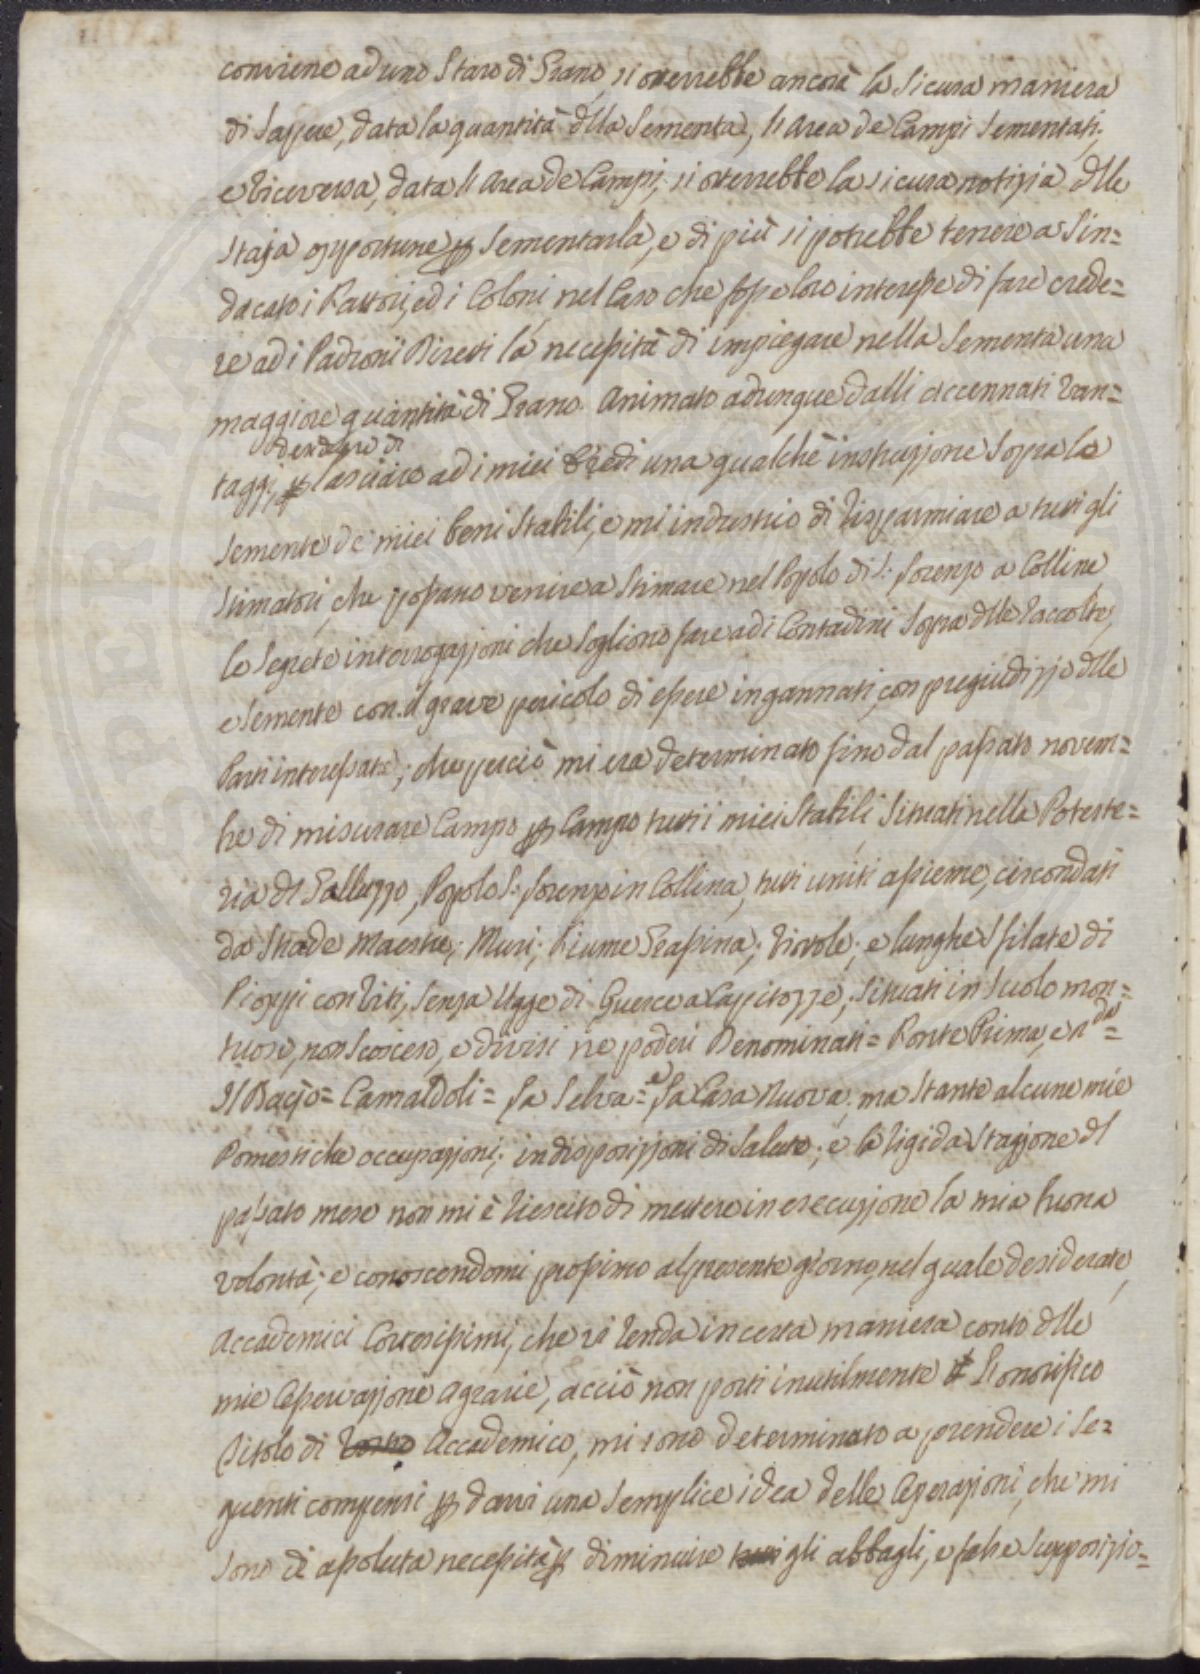 conviene ad uno Staro di Grano, si otterrebbe ancora la sicura maniera
di sapere, data la quantità dlla Sementa, l'Area de Campi Sementati;
e viceversa, data l'Area de Campi, si otterrebbe la sicura notizia dlle
Staja opportune p Sementarla, e di più si potrebbe tenere a Sin=
dacato i Fattori, ed i Coloni nel Caso che fosse loro interesse di fare crede=
re ad i Padroni Diretti la necessità di impiegare nella Sementa una
maggiore quantità di Grano. Animato adunque dalli accennati van=
taggi, p lasciare ad i miei Eredi una qualche instruzzione sopra la
desidero di
semente de miei beni Stabili, e mi industrio di risparmiare a tutti gli
stimatori, che possano venire a Stimare nel Popolo di S: Lorenzo a Colline
le segrete interrogazzioni che sogliono fare ad i Contadini sopra dlle raccolte,
e semente con il grave pericolo di essere ingannati, con pregiudizzio dlle
Parti interessate; che perciò mi era determinato fino dal passato novem=
bre di misurare Campo p Campo tutti i miei Stabili situati nella Poteste=
ria dl Galluzzo, Popolo S: Lorenzo in Collina, tutti uniti assieme, circondati
da Strade Maestre; Muri; Fiume Grassina; Viottole; e lunghe sfilate di
Pioppi con Viti, senza Uggie di Querce a Capitozze; situati in Suolo mon=
tuoso, non Scosceso, e divisi ne poderi Denominati= Fonte Prima, e 2da=
Il Bacìo= Camaldoli= La Selva= e La Casa Nuova; ma stante alcune mie
Domestiche occupazzioni; indisposizzioni di Salute; e la rigida Stagione dl
passato mese non mi è riescito di mettere in esecuzzione la mia buona
volontà; e conoscendomi prossimo al presente giorno, nel quale desiderate,
Accademici Cortesissimi, che vi renda in certa maniera conto dlle
mie Osservazzioni Agrarie, acciò non porti inutilmente l'onorifico
Titolo di Accademico, mi sono determinato a prendere i se=
guenti compensi p darvi una semplice idea delle Operazzioni, che mi
sono di assoluta necessità p diminuire tutti gli abbagli, e false supposizio=